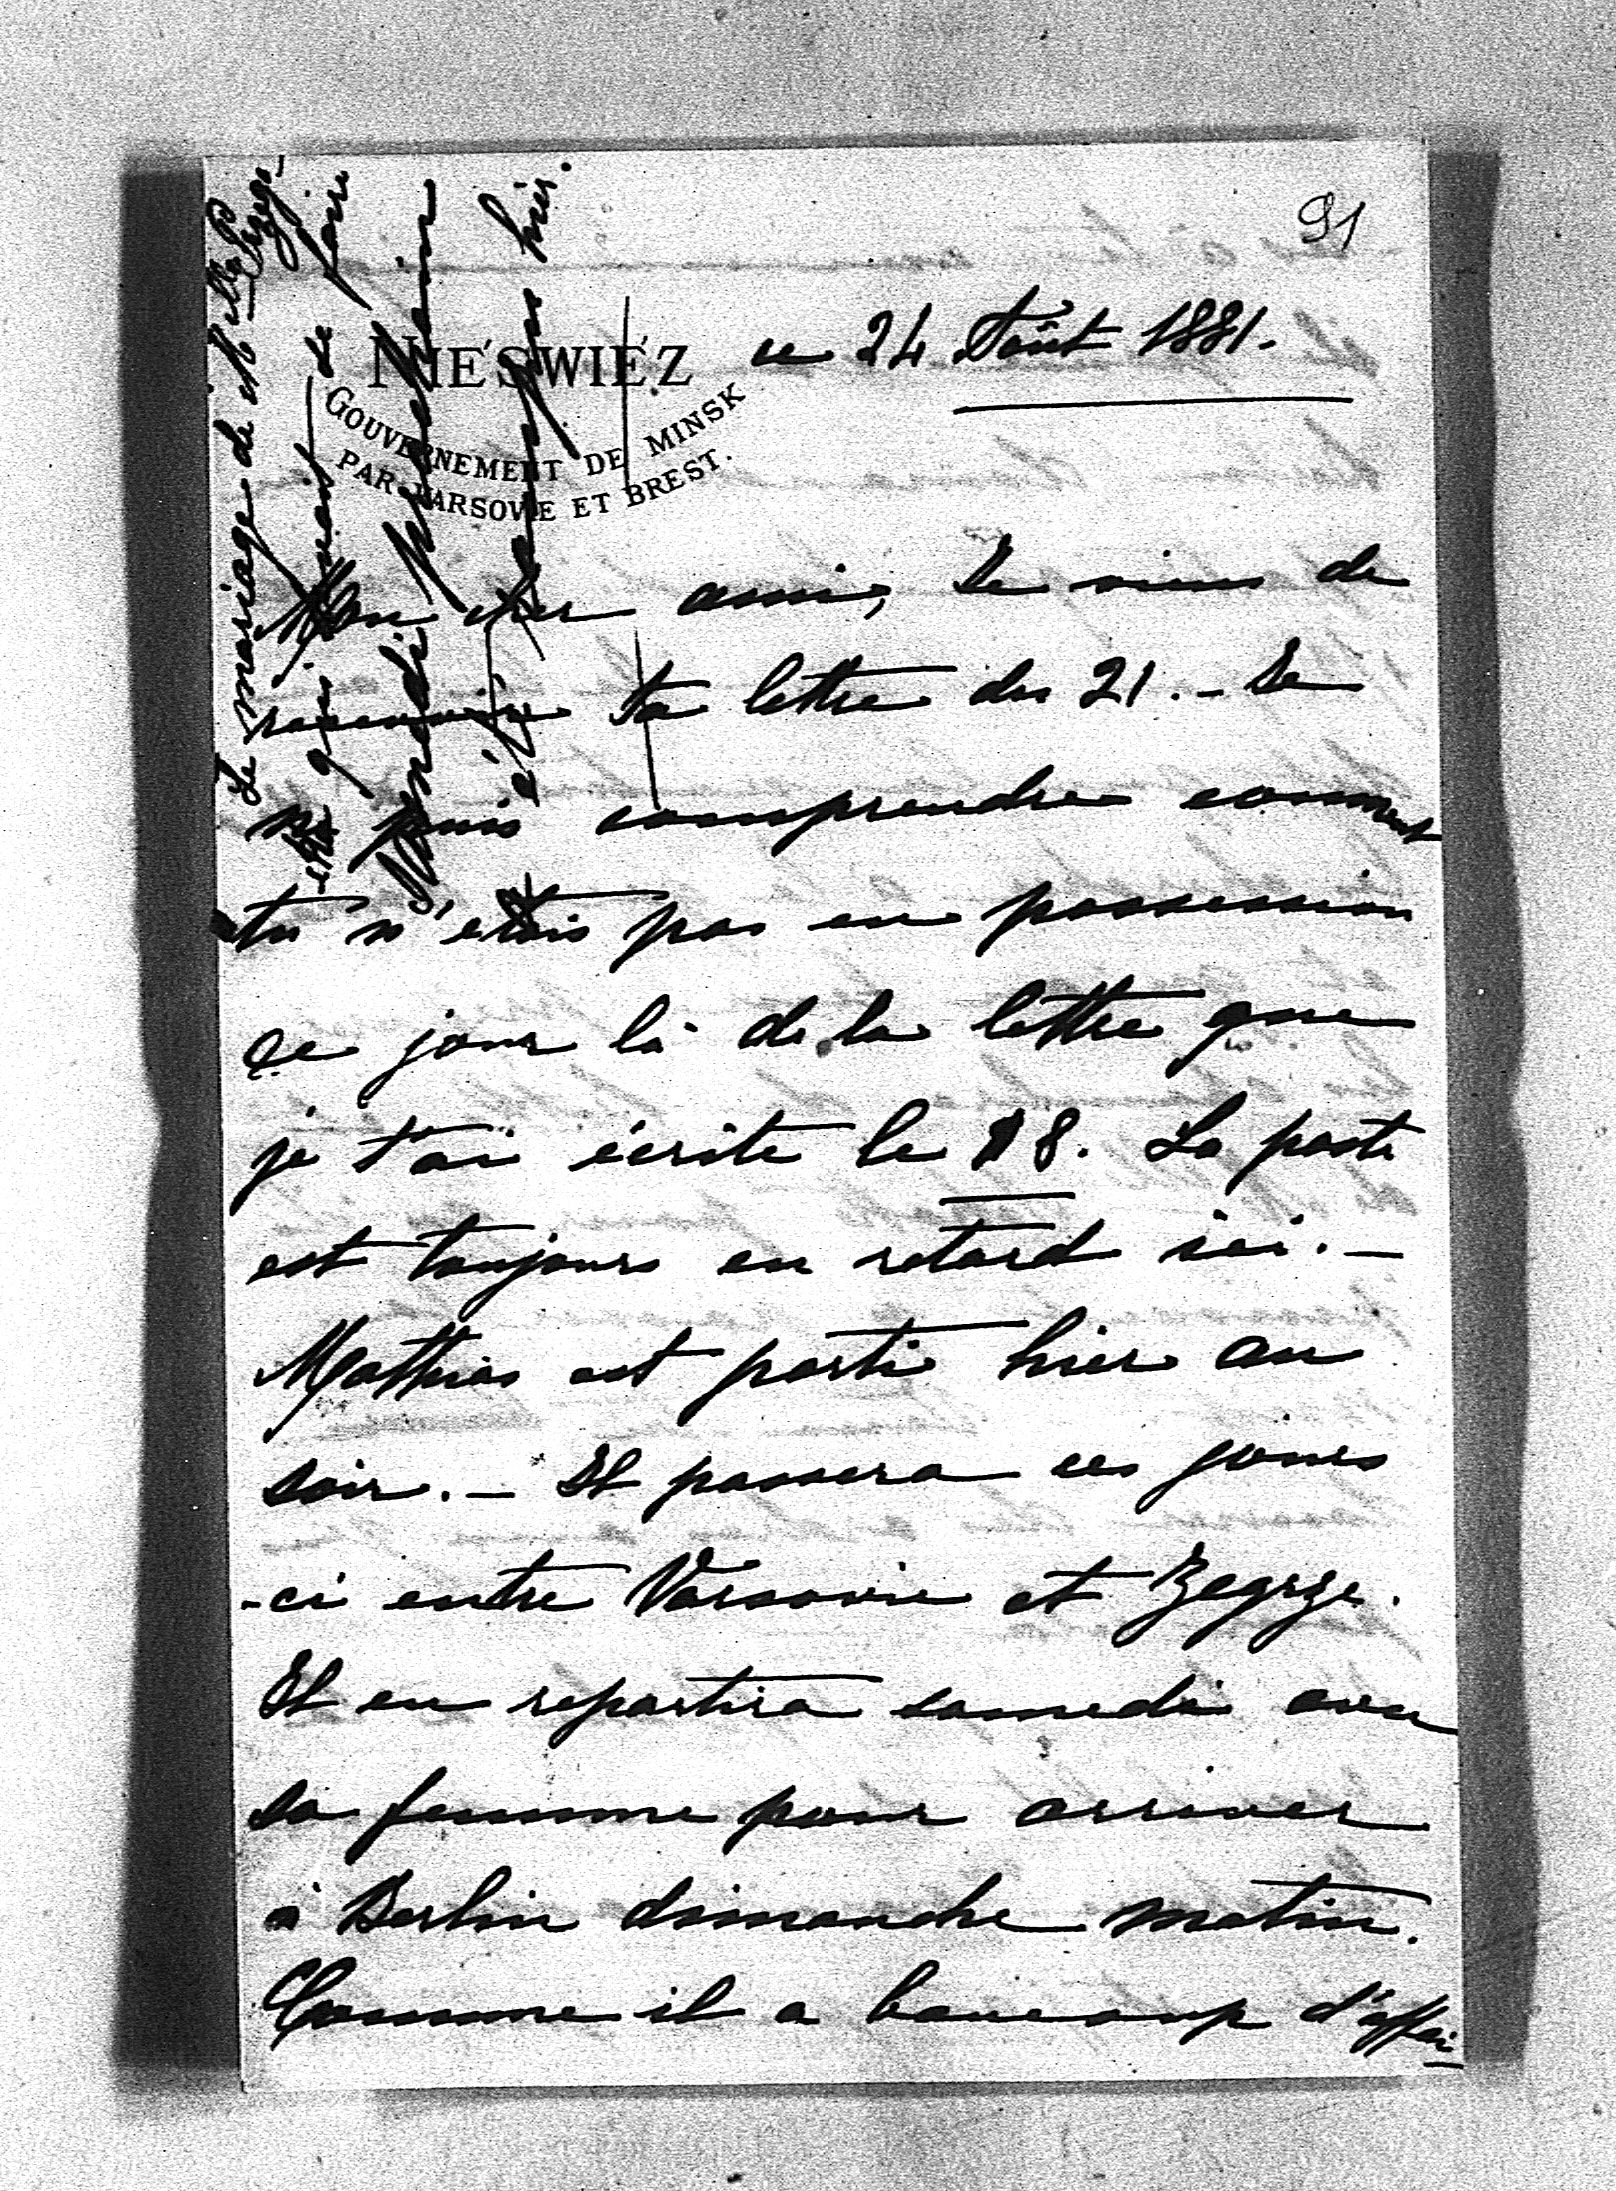 91
NIEŚWIEŻ
GOUVERNEMENT DE MINSK
PAR VARSOVIE ET BREST.
ce 24 Août 1881.
Mon cher ami, Je viens de
recevoir ta lettre du 21. - Je
ne puis comprendre comment
tu n'étais pas en possession
ce jour là de la lettre que
je t'ai écrite le 18. La poste
est toujours en retard ici. -
Mathias est parti hier au
soir. - Il passera ces jours
-ci entre Varsovie et Zegrze.
Il en repartira samedi avec
sa femme pour arriver
à Berlin dimanche matin.
Comme il a beaucoup d'affai-
Le mariage de Mlle
qui devait se faire
Vendredi prochain
a été hier.